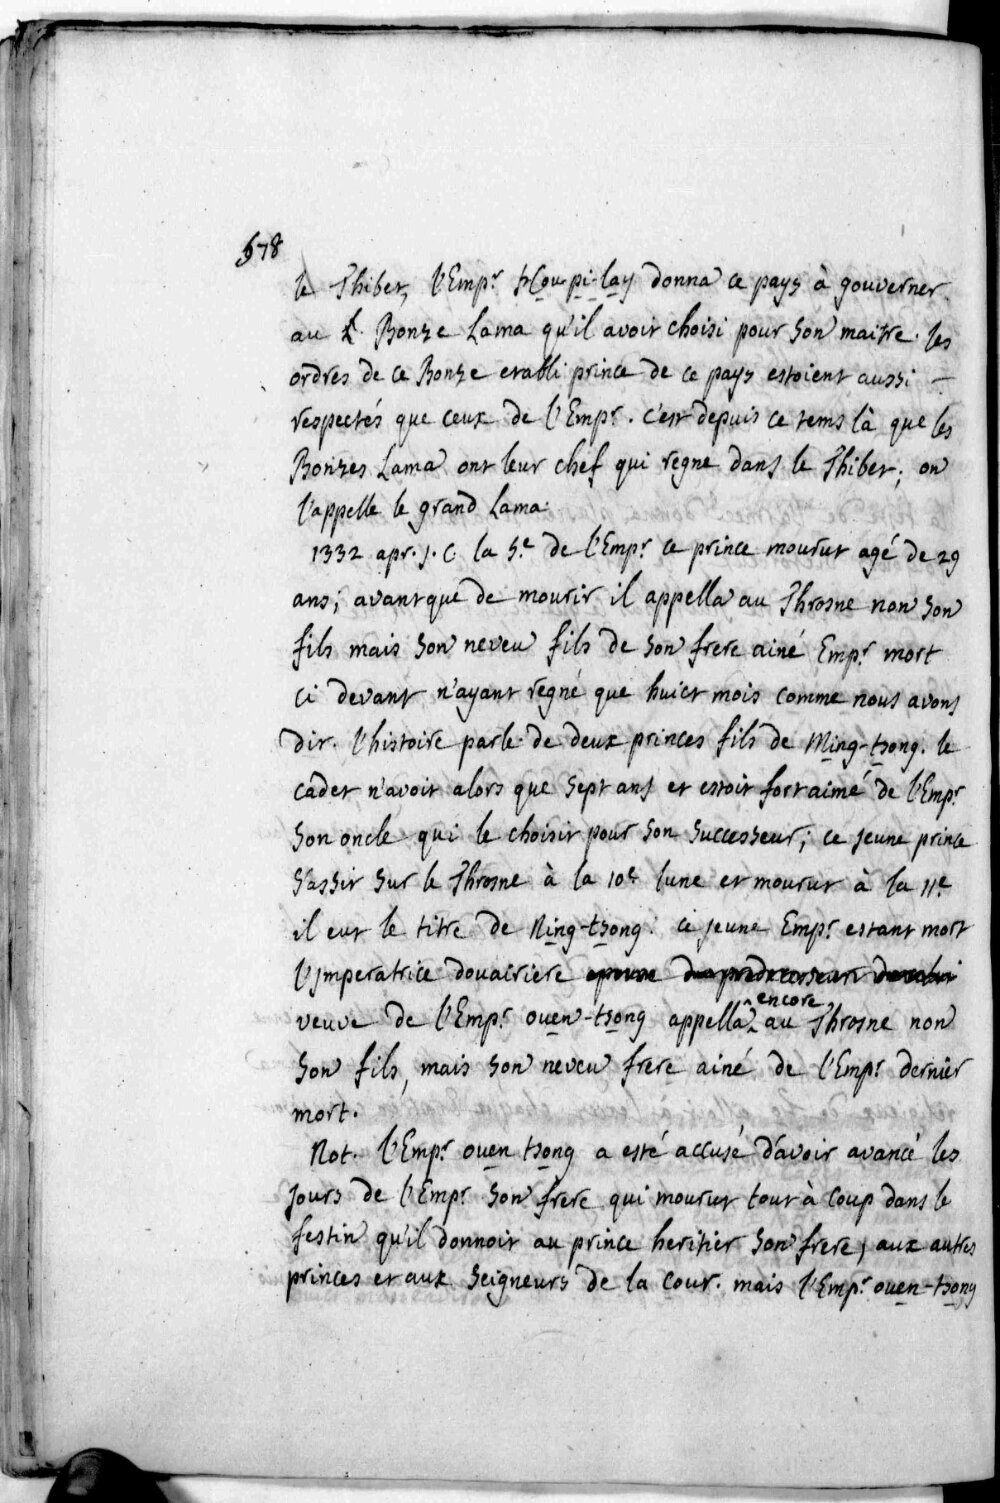 678
le Thibet, l'Emp.r hCou-pi-lay donna ce pays à gouverner
au Bonze Lama qu'il avoit choisi pour son maitre. les
ordres de ce Bonze etabli prince de ce pays estoient aussi –
respectés que ceux de l'Emp.r. c'est depuis ce tems là que les
Bonzes Lama ont leur chef qui regne dans le Thibet; on
l'appelle le grand Lama.
1332 apr. J. C. la 3.e de l'Emp.r ce prince mourut agé de 29
ans; avant que de mourir il appella au Throsne non son
fils mais son neveu fils de son frere ainé Emp.r mort
ci devant n'ayant regné que huict mois comme nous avons
dit. l'histoire parle de deux princes fils de Ming-tsong. le
cadet n'avoit alors que sept ans et estoit fort aimé de l'Emp.r
son oncle qui le choisit pour son successeur; ce jeune prince
s'assit sur le Throsne à la 10e lune et mourut à la 11.e
il eut le titre de Ning-tsong. ce jeune Emp.r estant mort
l'Imperatrice douairiere epouse du predecesseur
veuve de l'Emp.r ouen-tsong appella encore au Throsne non
son fils, mais son neveu frere ainé de l'Emp.r dernier
mort.
Not. l'Emp.r ouen tsong a esté accusé d'avoir avancé les
jours de l'Emp.r son frere qui mourut tout à coup dans le
festin qu'il donnoit au prince heritier son frere, aux autres
princes et aux seigneurs de la cour. mais l'Emp.r ouen-tsong